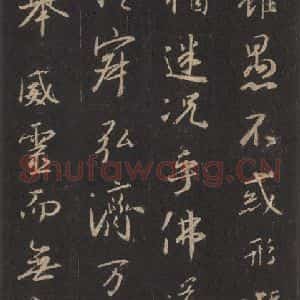 雖愚不惑形
迷况乎佛
宰弘濟万
舉威靈而無
Shufawang.CN